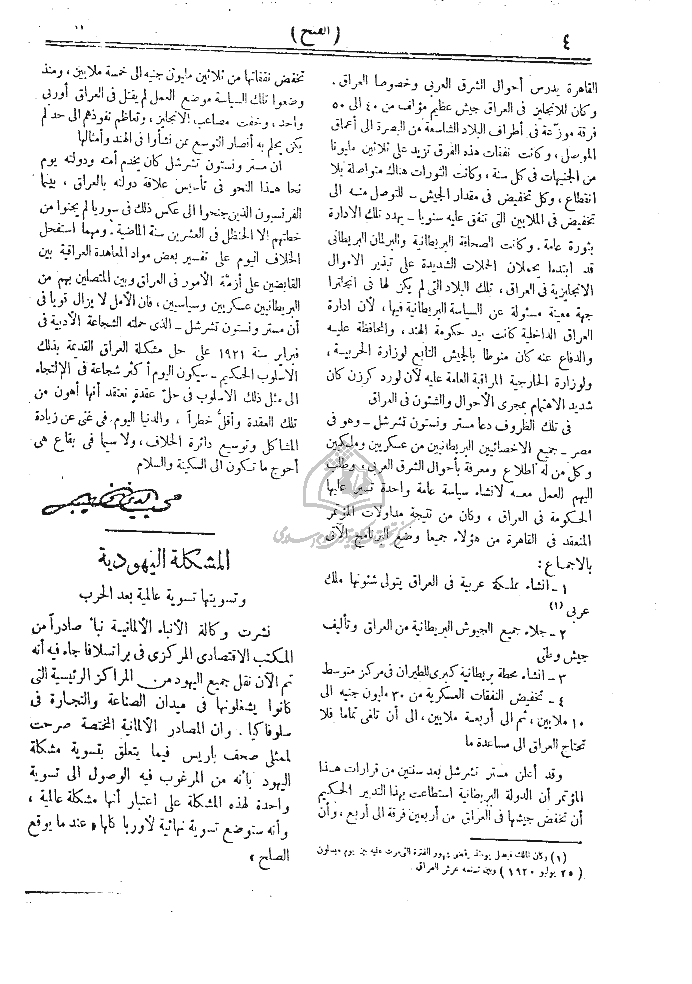 ٤
( الفتح )
القاهرة يدرس أحوال الشرق العربى وخصوصا العراق.
وكان للانجليز فى العراق جيش عظيم مؤلف من ٤٠ الى ٥٠
فرقة موزعة فى أطراف البلاد الشاسعة من البصرة الى أعماق
الموصل ، وكانت نفقات هذه الفرق تزيد على ثلاثين مليونا
من الجنيهات فى كل سنة ، وكانت الثورات هناك متواصلة بلا
انقطاع ، وكل تخفيض فى مقدار الجيش ـ للتوصل منه الى
تخفيض فى الملايين التى تنفق عليه سنويا ـ يهدد تلك الادارة
بثورة عامة . وكانت الصحافة البريطانية والبرلمان البريطانى
قد ابتدءا يحملان الحملات الشديدة على تبذير الاموال
الانجليزية فى العراق ، تلك البلاد التى لم يكن لها فى انجلترا
جهة معينة مسئولة عن السياسة البريطانية فيها ، لأن ادارة
العراق الداخلية كانت بيد حكومة الهند ، والمحافظة عليه
والدفاع عنه كان منوطا بالجيش التابع لوزارة الحربية ،
ولوزارة الخارجية المراقبة العامة عليه لأن لورد كرزن كان
شديد الاهتمام بمجرى الأحوال والشئون فى العراق
فى تلك الظروف دعا مستر ونستون تشرشل ـ وهو فى
مصر ـ جميع الاخصائيين البريطانيين من عسكريين وملكيين
وكل من له اطلاع ومعرفة بأحوال الشرق العربى ، وطلب
اليهم العمل معه لانشاء سياسة عامة واحدة تسير عليها
الحكومة فى العراق ، وكان من نتيجة مداولات المؤتمر
المنعقد فى القاهرة من هؤلاء جميعا وضع البرنامج الآتى
بالاجماع :
١ ـ انشاء مملكة عربية فى العراق يتولى شئونها ملك
عربى (١)
٢ ـ جلاء جميع الجيوش البريطانية من العراق وتأليف
جيش وطنى
٣ ـ انشاء محطة بريطانية كبرى للطيران فى مركز متوسط
٤ ـ تخفيض النفقات العسكرية من ٣٠ مليون جنيه الى
١٠ ملايين ، ثم الى أربعة ملايين ، الى أن تلغى تماما فلا
تحتاج العراق الى مساعدة ما
وقد أعلن مستر تشرشل بعد سنتين من قرارات هذا
المؤتمر أن الدولة البريطانية استطاعت بهذا التدبير الحكيم
أن تخفض جيشها فى العراق من أربعين فرقة الى أربع ، وأن
(١) وكان الملك فيصل يومئذ يقضى شهور الفترة التى مرت عليه بين يوم ميسلون
( ٢٥ يوليو ١٩٢٠ ) وبين تسنمه عرش العراق .
تخفض نفقاتها من ثلاثين مليون جنيه الى خمسة ملايين ، ومنذ
وضعوا تلك السياسة موضع العمل لم يقتل فى العراق أوربى
واحد ، وخفت مصاعب الانجليز ، وتعاظم نفوذهم الى حد لم
يكن يحلم به أنصار التوسع ممن نشأوا فى الهند وأمثالها
ان مستر ونستون تشرشل كان يخدم أمته ودولته يوم
نحا هذا النحو فى تأسيس علاقة دولته بالعراق ، بينما
الفرنسيون الذين جنحوا الى عكس ذلك فى سوريا لم يجنوا من
خطتهم الا الحنظل فى العشرين سنة الماضية . ومهما استفحل
الخلاف اليوم على تفسير بعض مواد المعاهدة العراقية بين
القابضين على أزمة الأمور فى العراق وبين المتصلين بهم من
البريطانيين عسكريين وسياسيين ، فان الأمل لا يزال قويا فى
أن مستر ونستون تشرشل ـ الذى حملته الشجاعة الأدبية فى
فبراير سنة ١٩٢١ على حل مشكلة العراق القديمة بذلك
الاسلوب الحكيم ـ سيكون اليوم أكثر شجاعة فى الالتجاء
الى مثل ذلك الاسلوب فى حل عقدة نعتقد أنها أهون من
تلك العقدة وأقل خطراً ، والدنيا اليوم فى غنى عن زيادة
المشاكل وتوسيع دائرة الخلاف ، ولا سيما فى بقاع هى
أحوج ما تكون الى السكينة والسلام
محب الدين الخطيب
المشكلة اليهودية
وتسويتها تسوية عالمية بعد الحرب
نشرت وكالة الأنباء الالمانية نبأ صادراً من
المكتب الاقتصادى المركزى فى براتسلافا جاء فيه أنه
تم الآن نقل جميع اليهود من المراكز الرئيسية التى
كانوا يشغلونها فى ميدان الصناعة والتجارة فى
سلوفاكيا . وان المصادر الالمانية المختصة صرحت
لممثلى صحف باريس فيما يتعلق بتسوية مشكلة
اليهود بأنه من المرغوب فيه الوصول الى تسوية
واحدة لهذه المشكلة على اعتبار أنها مشكلة عالمية ،
وأنه ستوضع تسوية نهائية لأوربا كلها « عند ما يوقع
الصلح »